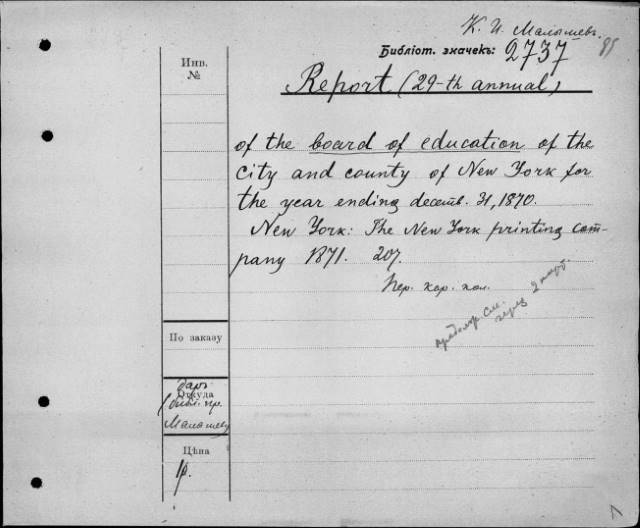 К. И. Малышевъ.
Библіот. значекъ: 2737
Инв.
№
Report (29-th annual)
of the board of education of the
city and county of New York for
the year ending decemb. 31, 1870.
New York: The New York printing com-
pany 1871. 207.
Пер. кор. кол.
см.
По заказу
Даръ
Откуда
Малышева
Цѣна
1р.